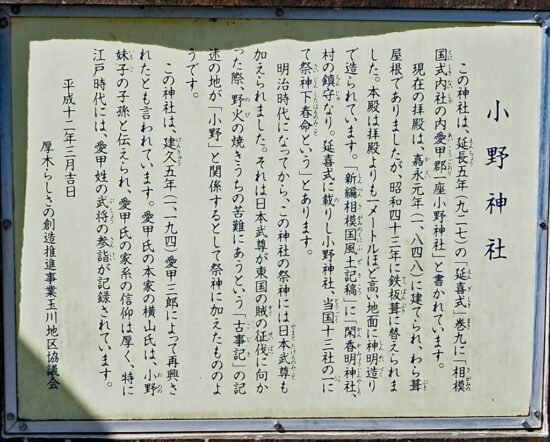 小野神社
この神社は、延長五年(九二七)の「延喜式」巻九に「相模
国式内社の内愛甲郡一座小野神社」と書かれています。
現在の拝殿は、嘉永元年(一、八四八)に建てられ、わら葺
屋根でありましたが、昭和四十三年に鉄板葺に替えられま
した。本殿は拝殿よりも一メートルほど高い地面に神明造り
で造られています。「新編相模国風土記稿」に「閑香明神社、
村の鎮守なり。延喜式に載りし小野神社、当国十三社の一に
て祭神下春命という」とあります。
明治時代になってから、この神社の祭神には日本武尊も
加えられました。それは日本武尊が東国の賊の征伐に向か
った際、野火の焼きうちの苦難にあうという「古事記」の記
述の地が「小野」と関係するとして祭神に加えたもののよ
うです。
この神社は、建久五年(一、一九四)愛甲三郎によって再興さ
れたとも言われています。愛甲氏の本家の横山氏は、小野
妹子の子孫と伝えられ、愛甲氏の家系の信仰は厚く、特に
江戸時代には、愛甲姓の武将の参詣が記録されています。
平成十二年三月吉日
厚木らしさの創造推進事業玉川地区協議会